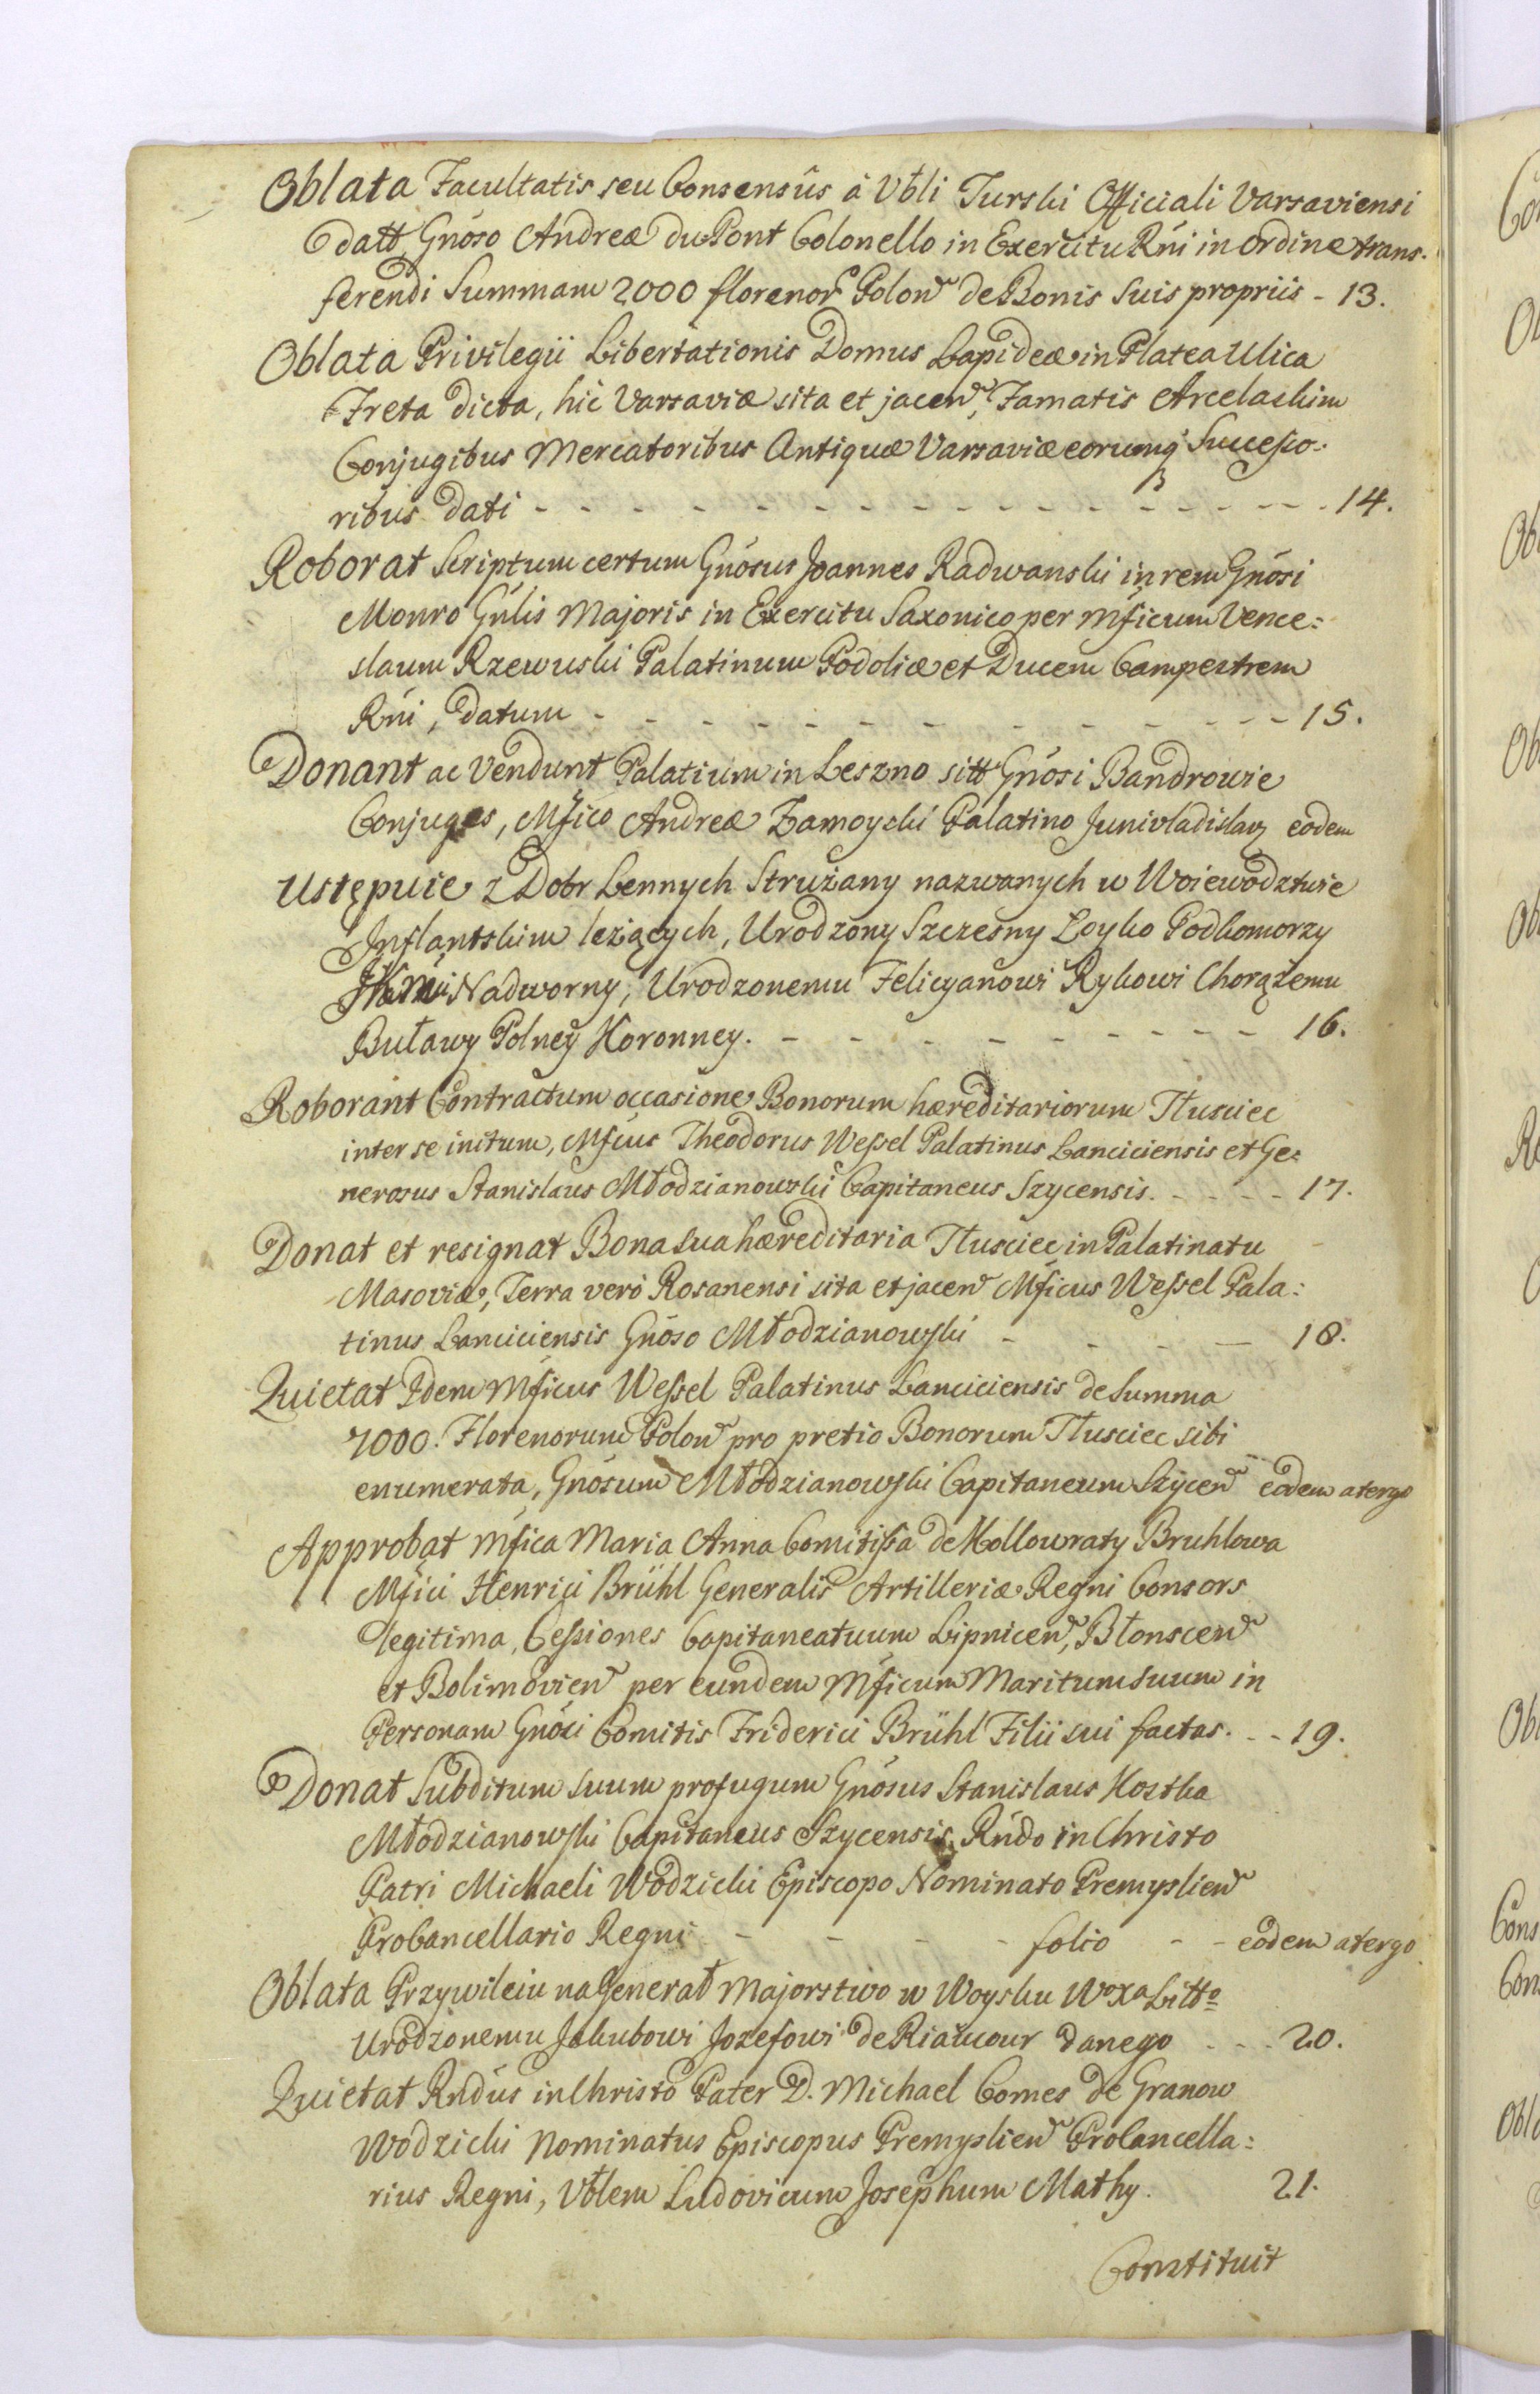 Oblata Facultatis seu Consensûs à Vbli Turski Officiali Varsaviensi
datt Gnóso Andreæ duPont Colonello in Exercitu Rńi in ordine trans-
ferendi Summam 2000 florenor Polon de Bonis suis propriis - 13.
Oblata Privilegii Libertationis Domus Lapideæ in Platea Ulica
Freta dicta, hic Varsaviæ sita et jacen, Famatis
Conjugibus Mercatoribus Antiquæ Varsaviæ eorumq Succeſso-
ribus dati - - - - - - - - - - - - - - - 14.
Roborat Scriptum certum Gnósus Joannes Radwanski in rem Gnósi
Monro Gńlis Majoris in Exercitu Saxonico per Mficum Vence:
slaum Rzewuski Palatinum Podoliæ et Ducem Campestrem
Rńi, datum - - - - - - - - - - - - - 15.
Donant ac Vendunt Palatium in Leszno sitt Gnósi Bandrowie
Conjuges, Mfico Andreæ Zamoyski Palatino Junivladislav eodem
Ustępuie z Dobr Lennych Strużany nazwanych w Woiewodztwie
Inflantskim leżących, Urodzony Szczesny Łoyko Podkomorzy
Nadworny, Urodzonemu Felicyanowi Rykowi Chorążemu
Buławy Polney Koronney. - - - - - - - - - 16.
Roborant Contractum occasione Bonorum hæreditariorum Tłusciec
inter se initum, Mficus Theodorus Weſsel Palatinus Lanciciensis et Ge:
nerosus Stanislaus Młodzianowski Capitaneus Szycensis. - - - - 17.
Donat et resignat Bona sua hæreditaria Tłusciec in Palatinatu
Masoviæ, Terra verò Rosanensi sita et jacen Mficus Weſsel Pala:
tinus Lanciciensis Gnóso Młodzianowski - - - - - 18.
Quietat Idem Mficus Weſsel Palatinus Lanciciensis de Summa
7000. Florenorum Polon pro pretio Bonorum Tłusciec sibi
enumerata, Gnósum Młodzianowski Capitaneum Szycen eodem atergo
Approbat Mfica Maria Anna Comitiſsa de Kollowraty Bruhlowa
Mfici Henrici Brühl Generalis Artilleriæ Regni Consors
legitima, Ceſsiones Capitaneatuum Lipnicen, Błonscen
et Bolimovien per eundem Mficum Maritum suum in
Personam Gnósi Comitis Friderici Brühl Filii sui factas. - - 19.
Donat Subditum suum profugum Gnósus Stanislaus Kostka
Młodzianowski Capitaneus Szycensis, Rńdo in Christo
Patri Michaeli Wodzicki Episcopo Nominato Premyslien
Procancellario Regni - - - - folio - - eodem atergo
Oblata Przywileiu na Generał Majorstwo w Woysku WoXa Litto
Urodzonemu Jakubowi Jozefowi de Riaucour danego - - - 20.
Quietat Rndús in Christo Pater D. Michael Comes de Granow
Wodzicki Nominatus Episcopus Premyslien Procancella:
rius Regni, Vblem Ludovicum Josephum Mathy. 21.
Constituit